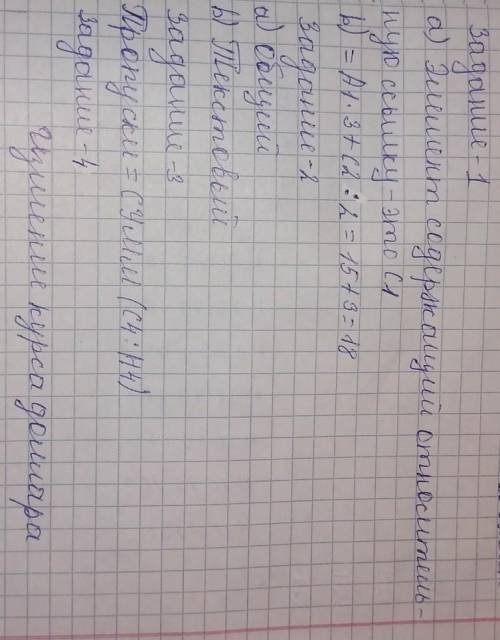 Задание-1
а) Элемент содержащий относитель-
ную ссылку - это С1
b) = А1 · 3 + С2 : 2 = 15 + 3 = 18
Задание-2
а) Общий
b) Текстовый
Задание-3
Пропуски = СУММ (С4 : Н4)
Задание-4
Изменение курса доллара